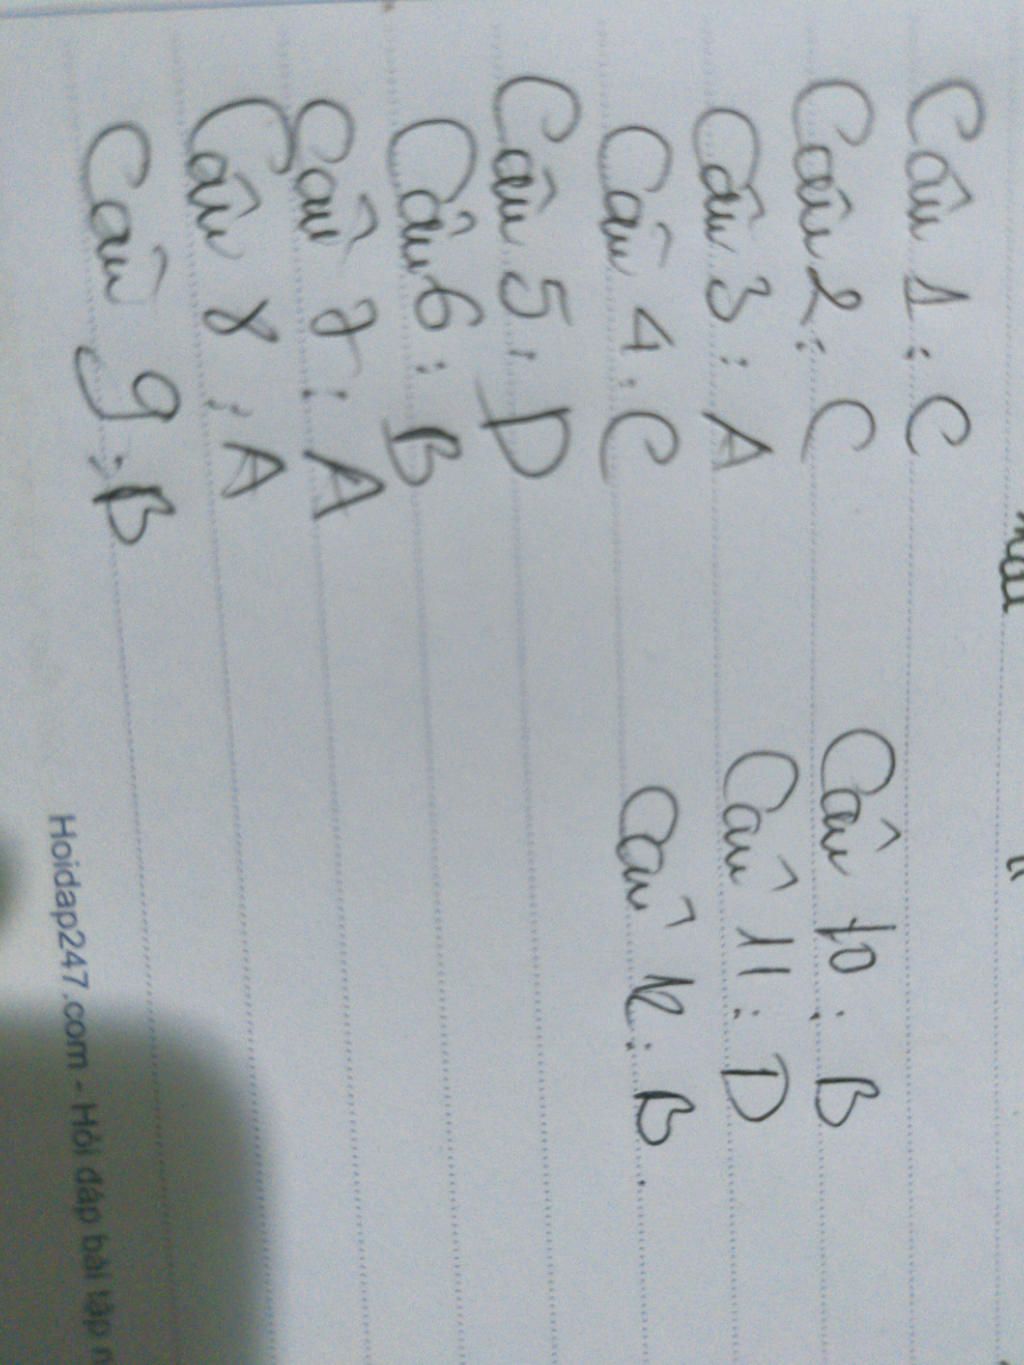 Câu 1: C
Câu 2: C
Câu 3: A
Câu 4: C
Câu 5: D
Câu 6: B
Câu 7: A
Câu 8: A
Câu 9: B
Câu 10: B
Câu 11: D
Câu 12: B.
Hoidap247.com - Hỏi đáp bài tập